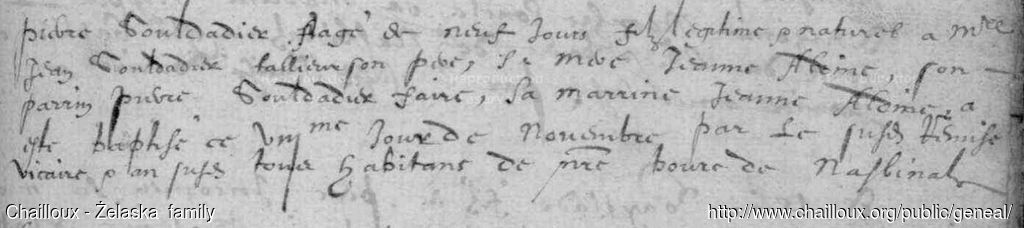 pierre Souldadier aagé de neuf jours filz legitime & naturel a mre
Jean Souldadier tallieur son pere, Sa mere Jeanne son
parrin pierre Souldadier faire, Sa marrine Jeanne a
este baptisé ce viijme Jour de Novembre par Le susd
vicaire & an susd tous habitans de nre bourc de Nasbinal
Chailloux - Żelaska family http://www.chailloux.org/public/geneal/